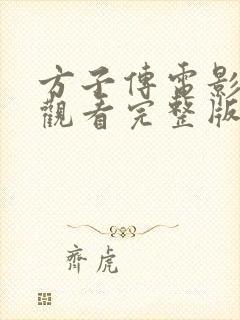 方子傳電影
觀看完整版
齊虎